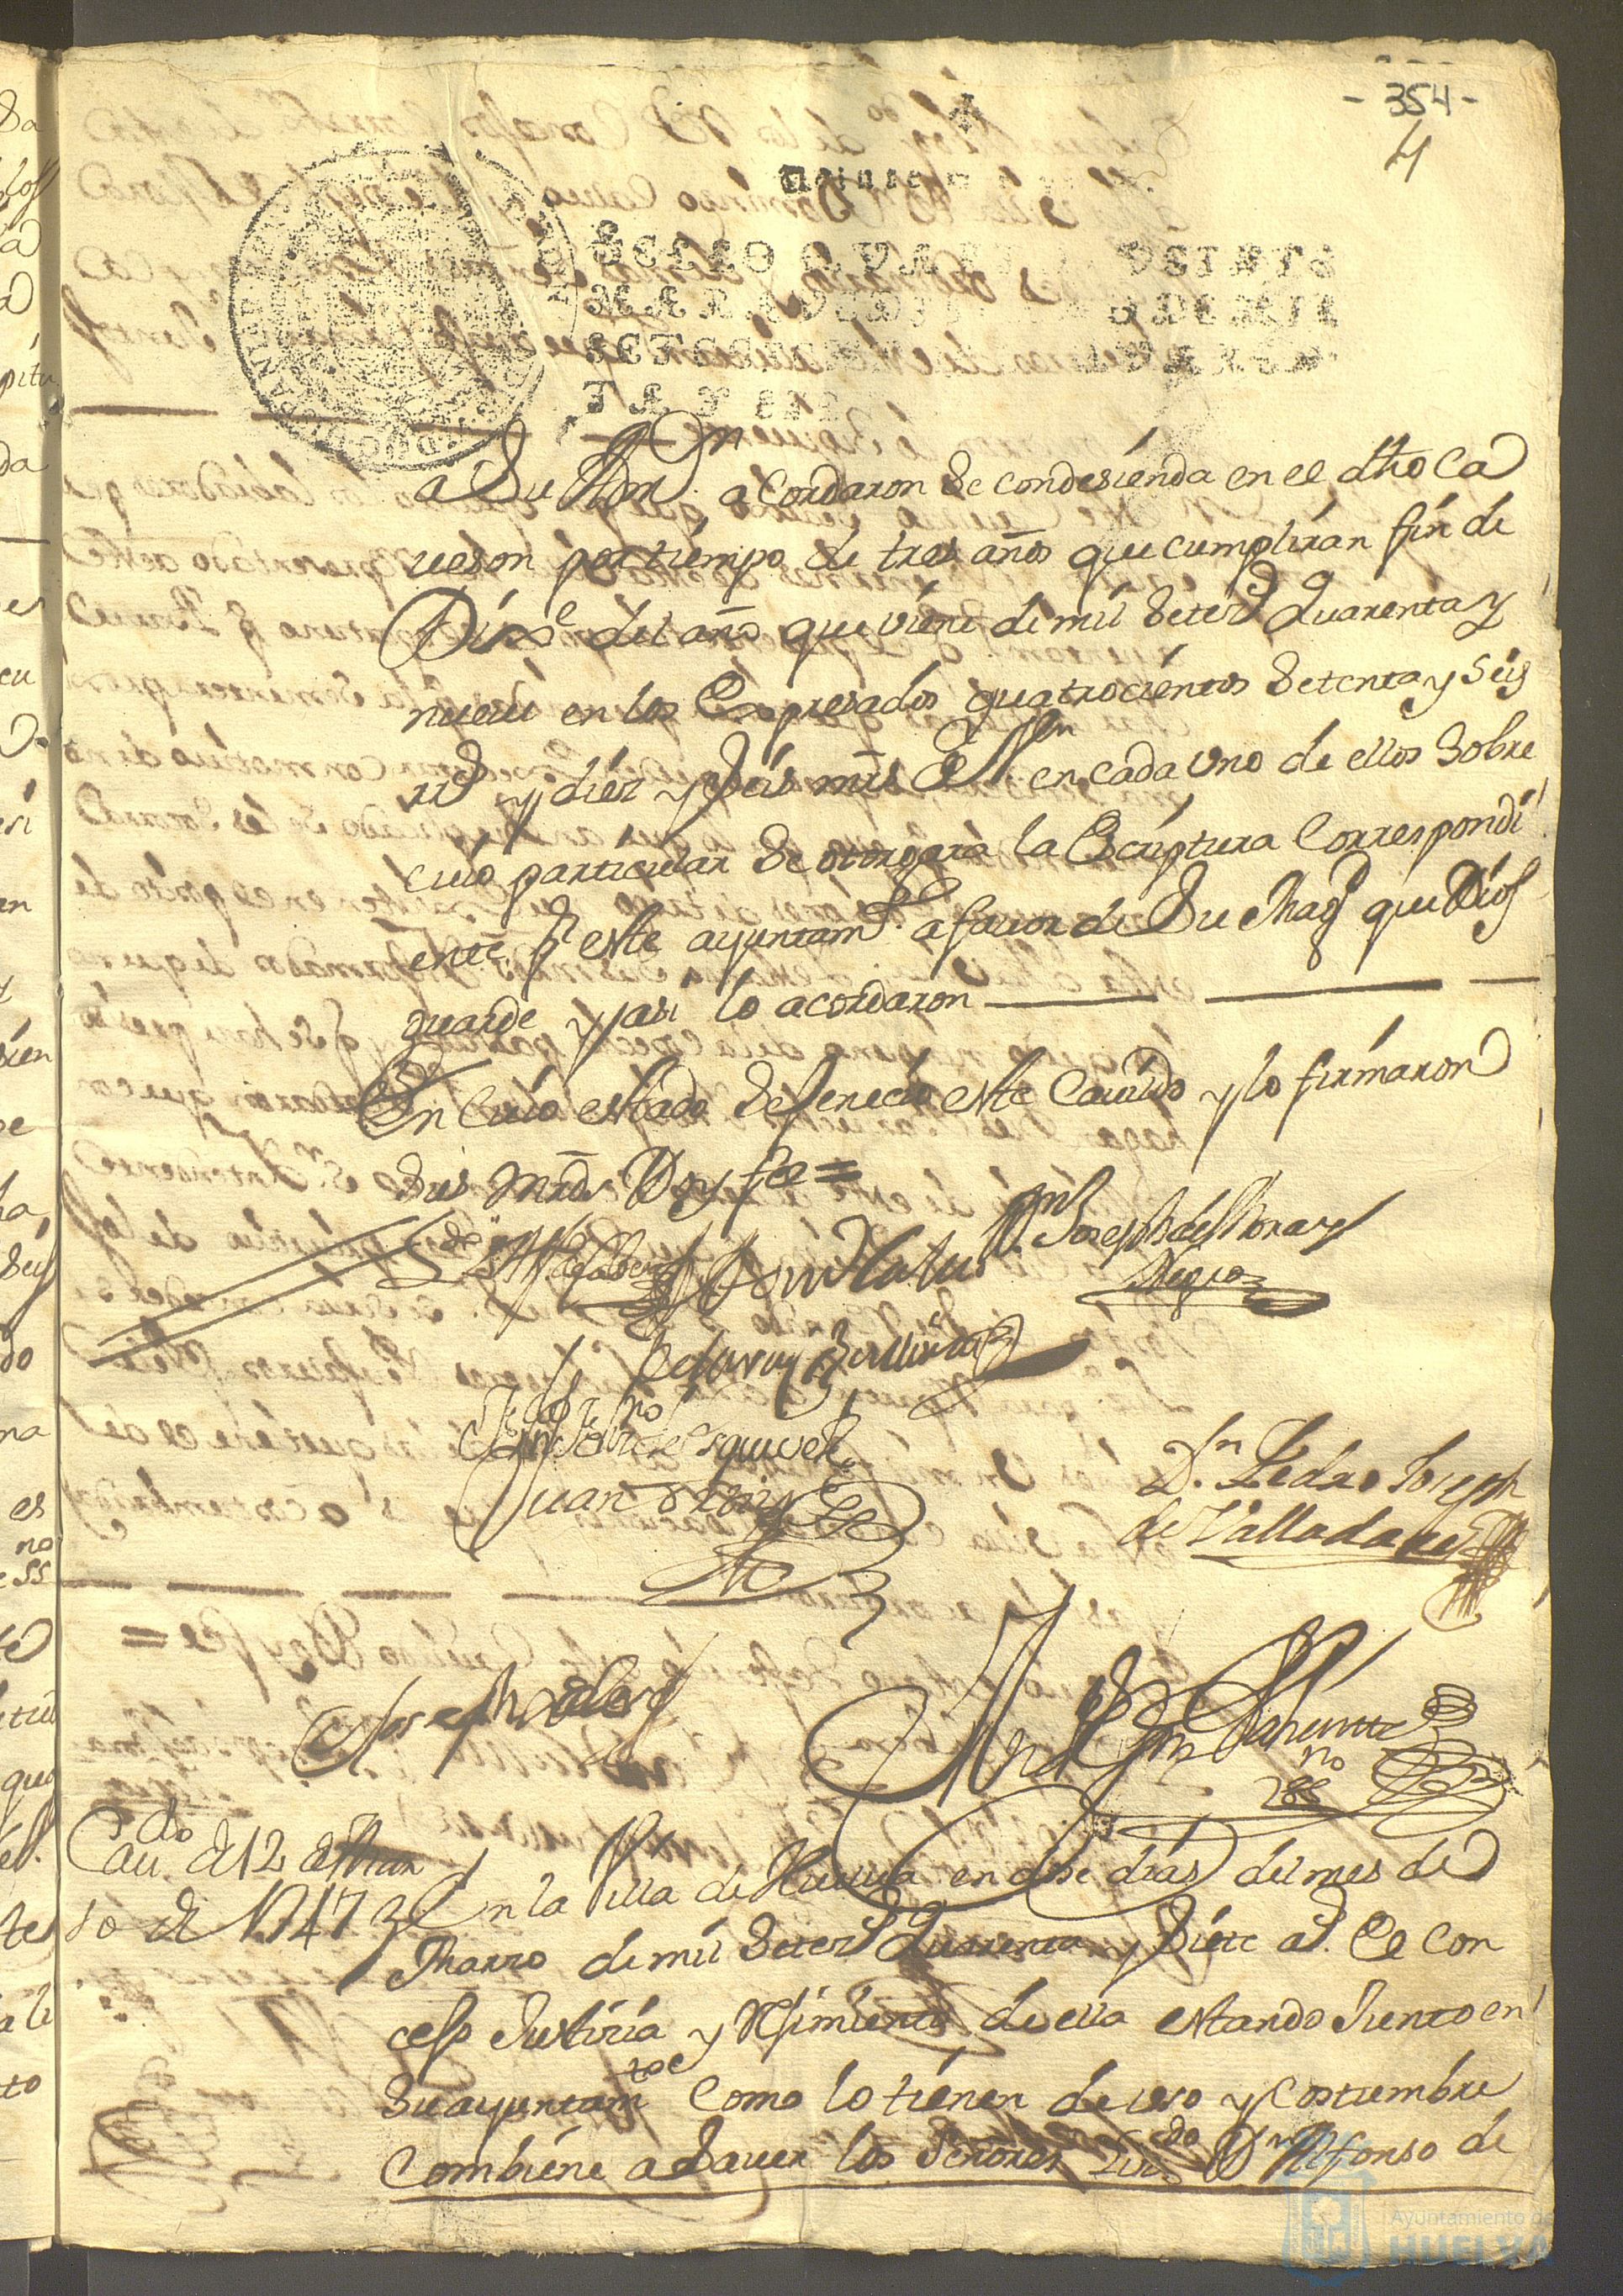 - 354 -
4
SELLO QVARTO VEINTE
MARAVEDIS AÑO DE MIL
SETECIENTOS Y QVAREN
TA Y SEIS
a Su Mgd. acordaron Se condesienda en el dho Ca
veson por tiempo de tres años que cumpliran fin de
Dizre del año que viene de mil Setezs Quarenta y
nueve en los Expresados quatrocientos Setenta y Seis
rs y diez y Seis mrs Vllon en cada Uno de ellos Sobre
cuio particular Se otorgara la Escriptura Correspondi
ente pr este ayuntamto. a favor de Su Magd que Dios
guarde y asi lo acordaron
En Cuio estado Se fenecio este Cavildo y lo firmaron
Sus Mrds Doy fee =
Dn Joseph del
Dn. Pedro Joseph
de Valladares
Joseph
Cavdo de 12 de Mar
so de 1747
En la Villa de Huelva en dose dias del mes de
Marzo de mil Setezs Quarenta y Siete as. El Con
cejo Justizia y Rejimiento de ella estando Junto en
Su ayuntamto Como lo tienen de uso y costumbre
Combiene a Saver los Señores Lizdo Dn Alfonso de
Ayuntamiento de
HUELVA